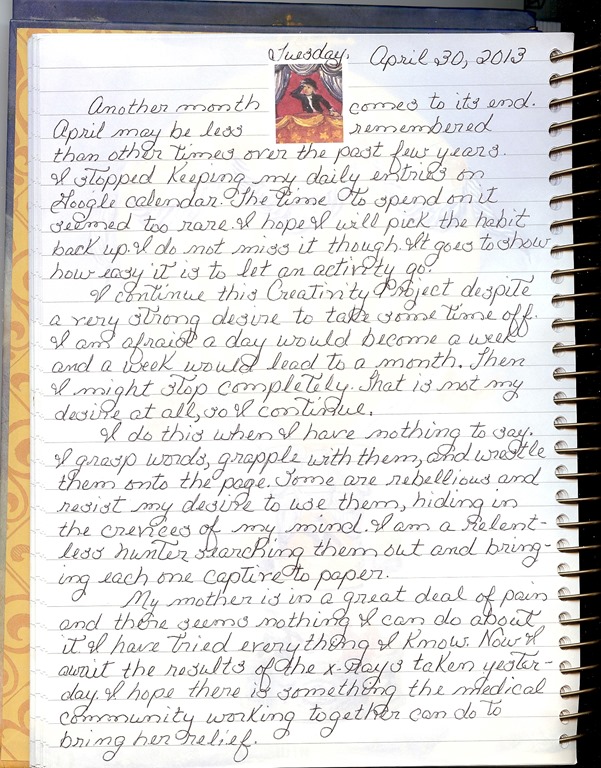 Tuesday, April 30, 2013
Another month comes to its end.
April may be less remembered
than other times over the past few years.
I stopped keeping my daily entries on
Google calendar. The time to spend on it
seemed too rare. I hope I will pick the habit
back up. I do not miss it though. It goes to show
how easy it is to let an activity go.
I continue this Creativity Project despite
a very strong desire to take some time off.
I am afraid a day would become a week
and a week would lead to a month. Then
I might stop completely. That is not my
desire at all, so I continue.
I do this when I have nothing to say.
I grasp words, grapple with them, and wrestle
them onto the page. Some are rebellious and
resist my desire to use them, hiding in
the crevices of my mind. I am a relent-
less hunter searching them out and bring-
ing each one captive to paper.
My mother is in a great deal of pain
and there seems nothing I can do about
it. I have tried everything I know. Now I
await the results of the x-rays taken yester-
day. I hope there is something the medical
community working together can do to
bring her relief.